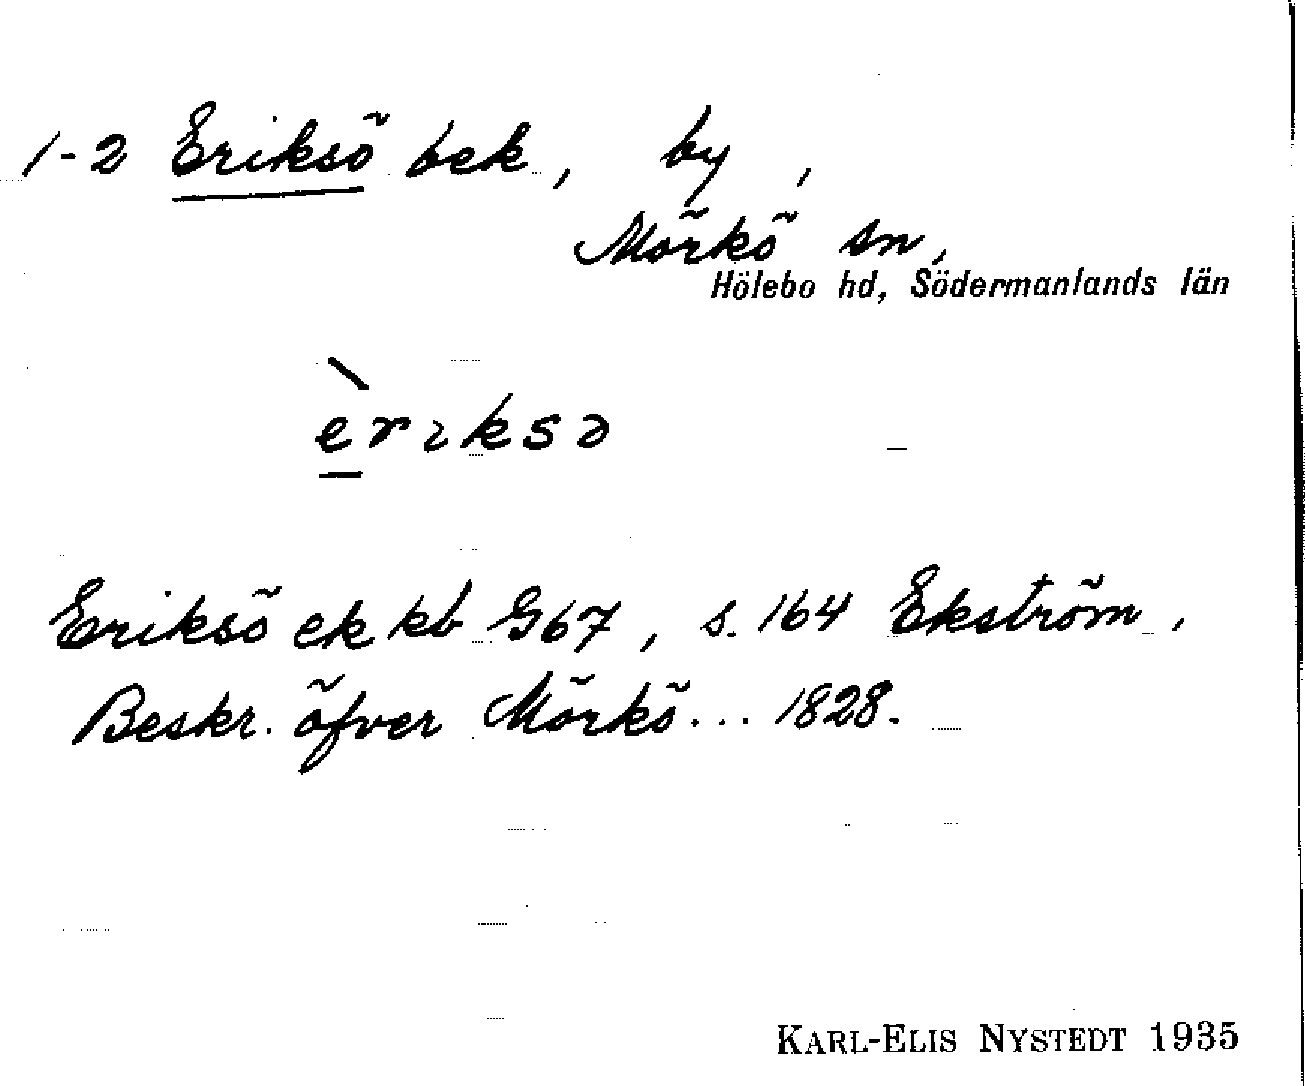 1-2 Eriksö bek, by,
Mörkö sn,
Hölebo hd, Södermanlands län
èrıksə
Eriksö ek kb G67, s. 164 Ekström,
Beskr. öfver Mörkö... 1828.
KARL-ELIS NYSTEDT 1935